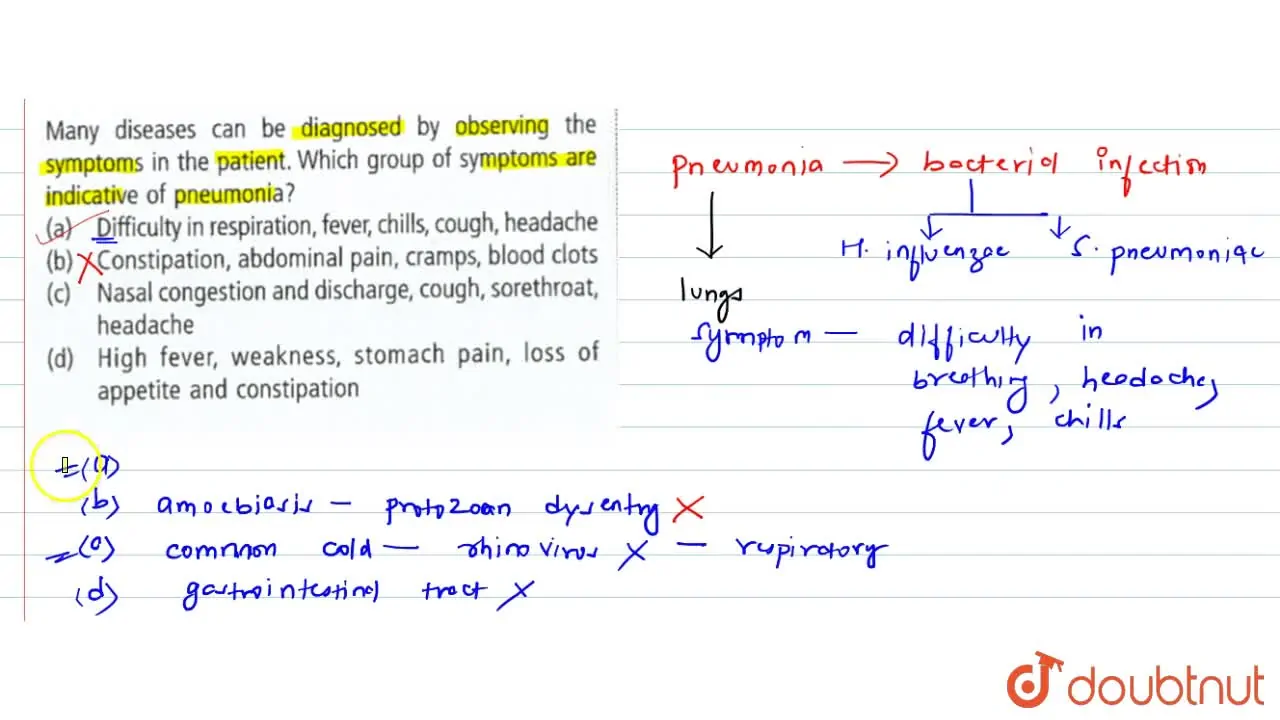 Many diseases can be diagnosed by observing the
symptoms in the patient. Which group of symptoms are
indicative of pneumonia?
(a) Difficulty in respiration, fever, chills, cough, headache
(b) Constipation, abdominal pain, cramps, blood clots
(c) Nasal congestion and discharge, cough, sorethroat,
headache
(d) High fever, weakness, stomach pain, loss of
appetite and constipation
Pneumonia → bacterial infection
H. influenzae S. pneumoniae
lungs
symptom — difficulty in
breathing, headache,
fever, chills
=(a)
(b) amoebiasis — protozoan dysentry X
=(c) common cold — rhinovirus X — respiratory
(d) gastrointestinal tract X
doubtnut